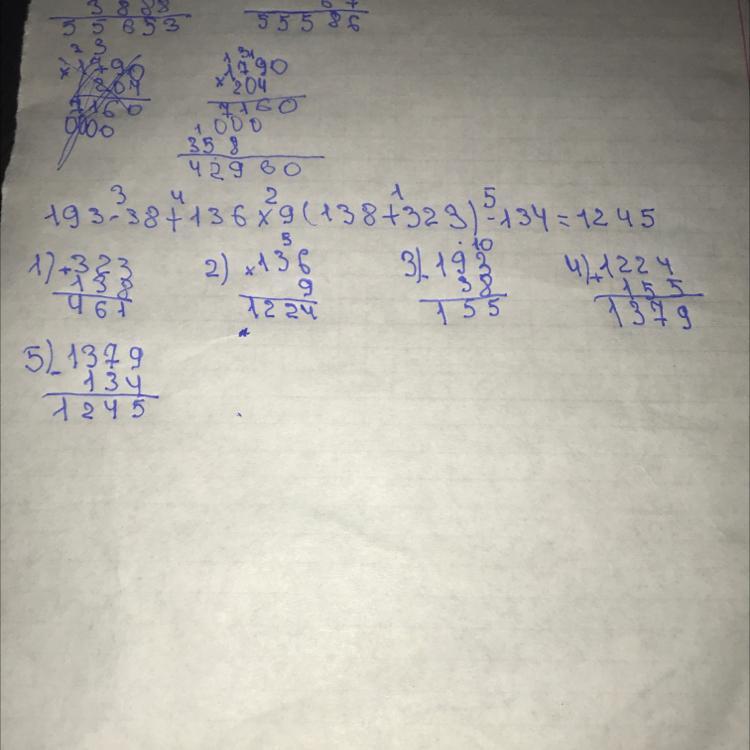 3888
55653
55586
1790
204
7160
0000
1790
× 204
7160
000
358
42960
193-38+136×9(138+323)-134=1245
1) +323
138
461
2) ×136
9
1224
3) -193
38
155
4) +1224
155
1379
5) -1379
134
1245